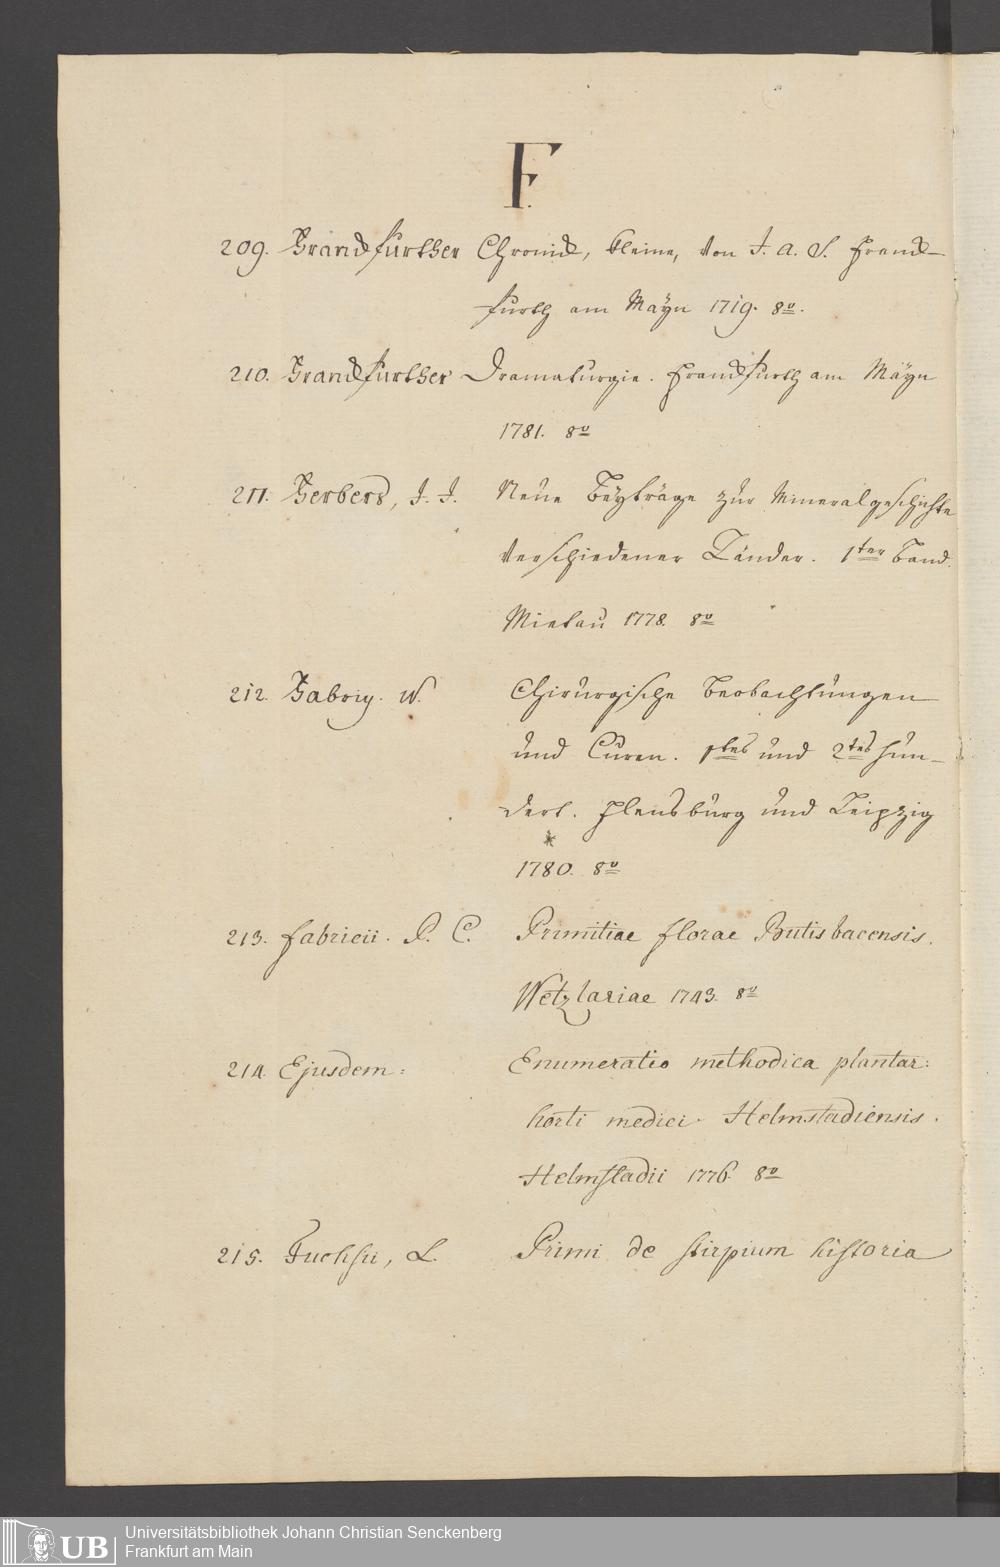 F.
209. Franckfurther Chronick, kleine, von J. A. S. Franck-
furth am Mäyn 1719. 8º.
210. Franckfurther Dramaturgie. Franckfurth am Mäyn
1781. 8º
211. Ferbers, J. J. Neue Beyträge zur Mineralgeschichte
verschiedener Länder. 1ter Band.
Mietau 1778. 8º
212. Fabriz. W. Chirurgische Beobachtungen
und Curen. 1tes und 2tes Hun-
dert. Flensburg und Leipzig
1780. 8º
213. Fabricii. P. C. Primitiae florae Butisbacensis.
Wetzlariae 1743. 8º
214. Ejusdem: Enumeratio methodica plantar:
horti medici Helmstadiensis.
Helmstadii 1776. 8º
215. Fuchsii, L. Primi de stirpium historia
UB Universitätsbibliothek Johann Christian Senckenberg
Frankfurt am Main